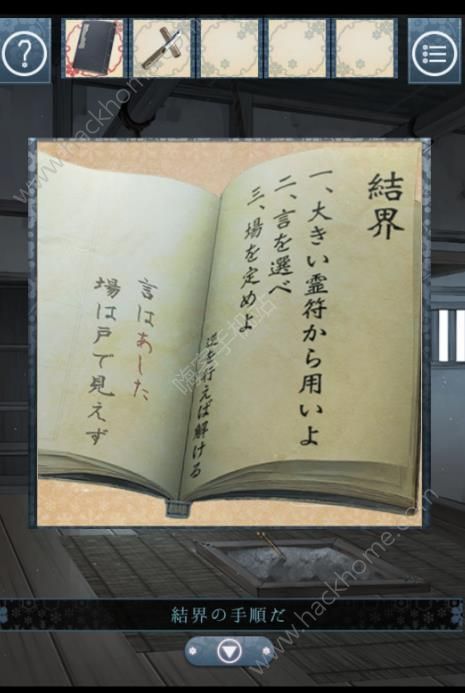 結界
一、大きい霊符から用いよ
二、言を選べ
三、場を定めよ
逆を行えば解ける
言はあした
場は戸で見えず
結界の手順だ
www.hackhome.com
嗨客手机站
www.hackhome.com